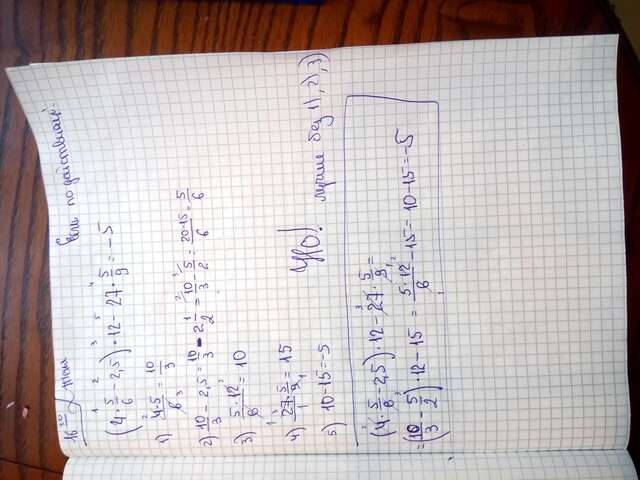 16³⁰ Если по действиям:
(4·5/6 - 2,5)·12 - 27·5/9 = -5
1) 4·5/6 = 10/3
2) 10/3 - 2,5 = 10/3 - 2 1/2 = 10/3 - 5/2 = 20-15/6 = 5/6
3) 5·12/6 = 10
4) 27·5/9 = 15
5) 10-15=-5
НО! лучше без 1), 2), 3)
(4·5/6 - 2,5)·12 - 27·5/9 =
=(10/3 - 5/2)·12 - 15 = 5·12/6 - 15 = 10-15=-5